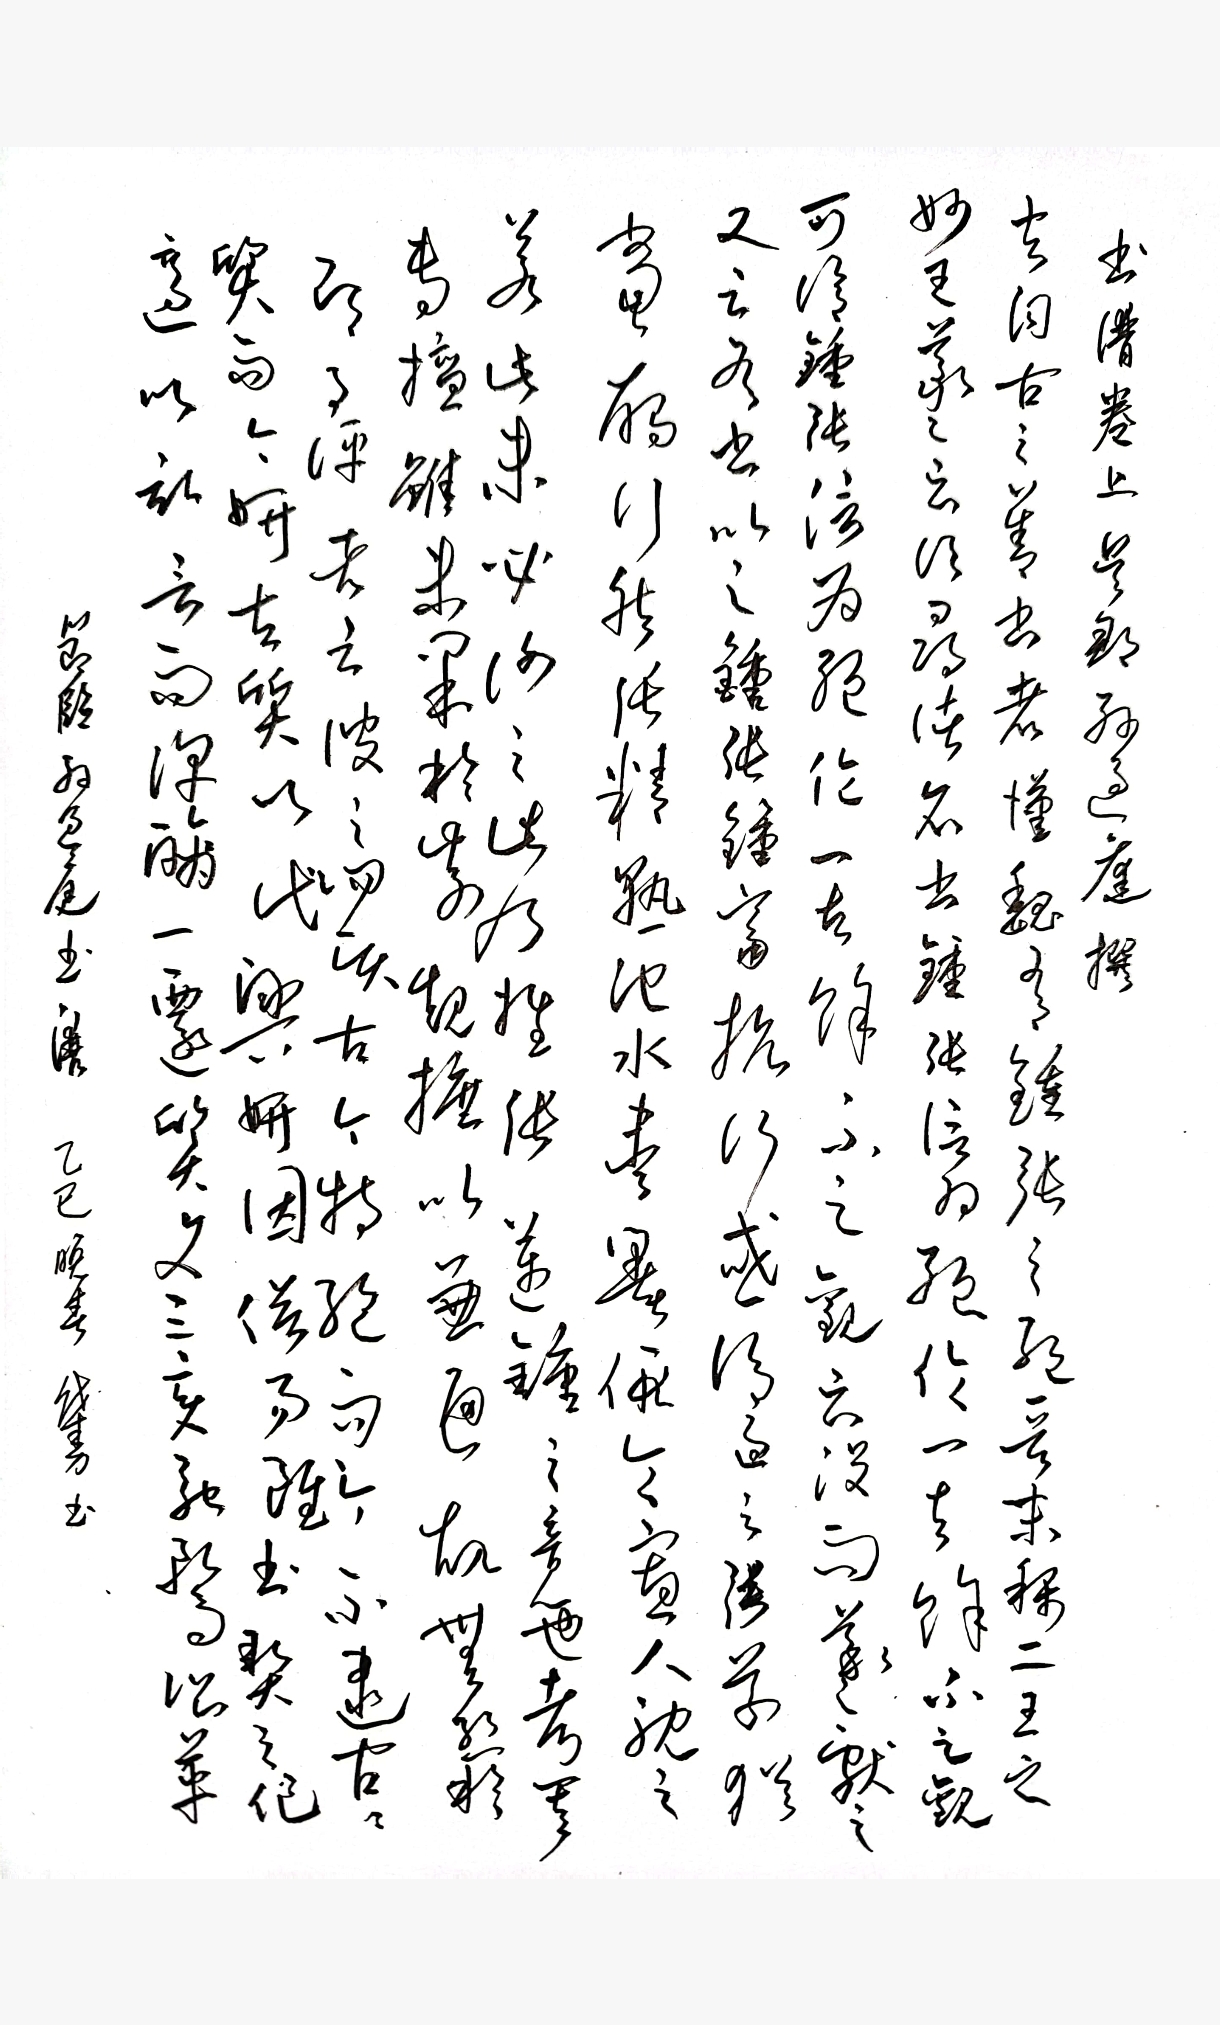 书谱卷上吴郡孙过庭撰
夫自古之善书者漢魏有鍾張之絕晋末稱二王之
妙王羲之云顷尋诸名书鍾张信为絕倫其餘不足觀
可谓鍾張信为絕倫其餘不足觀云没而羲獻之
又云吾书比之鍾張鍾當抗行或谓过之張草猶
當雁行然张精熟池水盡墨假令寡人耽之
若此未必谢之此乃推张邁鍾之意也考其
专擅雖未果於前規摭以兼通故無慚於
即事評者云彼之四賢古今特絕而今不逮古古
質而今妍夫質以代興妍因俗易雖书契之作
適以記言而淳醨一遷質文三變馳騖沿革
節臨孙过庭书譜 乙巳晚春 书